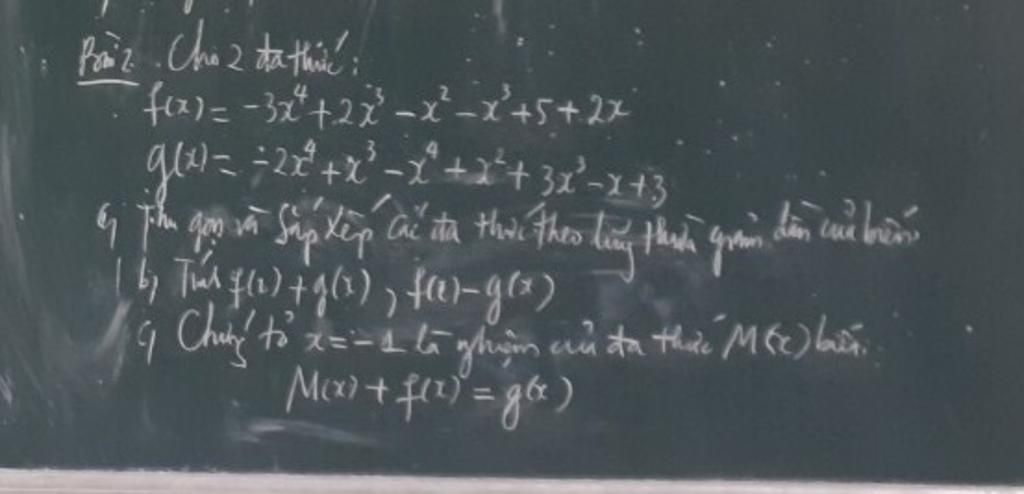 Bài 2. Cho 2 đa thức:
f(x) = -3x⁴ + 2x³ - x² - x³ + 5 + 2x
g(x) = -2x⁴ + x³ - x⁴ + x² + 3x³ - x + 3
a, Thu gọn và sắp xếp các đa thức theo lũy thừa giảm dần của biến.
b, Tính f(x) + g(x), f(x) - g(x)
c, Chứng tỏ x = -1 là nghiệm của đa thức M(x) biết:
M(x) + f(x) = g(x)